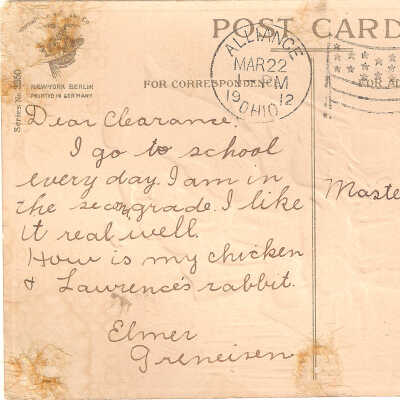 POST CARD
NEW-YORK BERLIN
PRINTED IN GERMANY
FOR CORRESPONDENCE
ALLIANCE
MAR 22
1912
OHIO
Dear Clearance:
I go to school
every day. I am in
the second grade. I like
it real well.
How is my chicken
& Laurence's rabbit.
Elmer
Greneisen
Maste